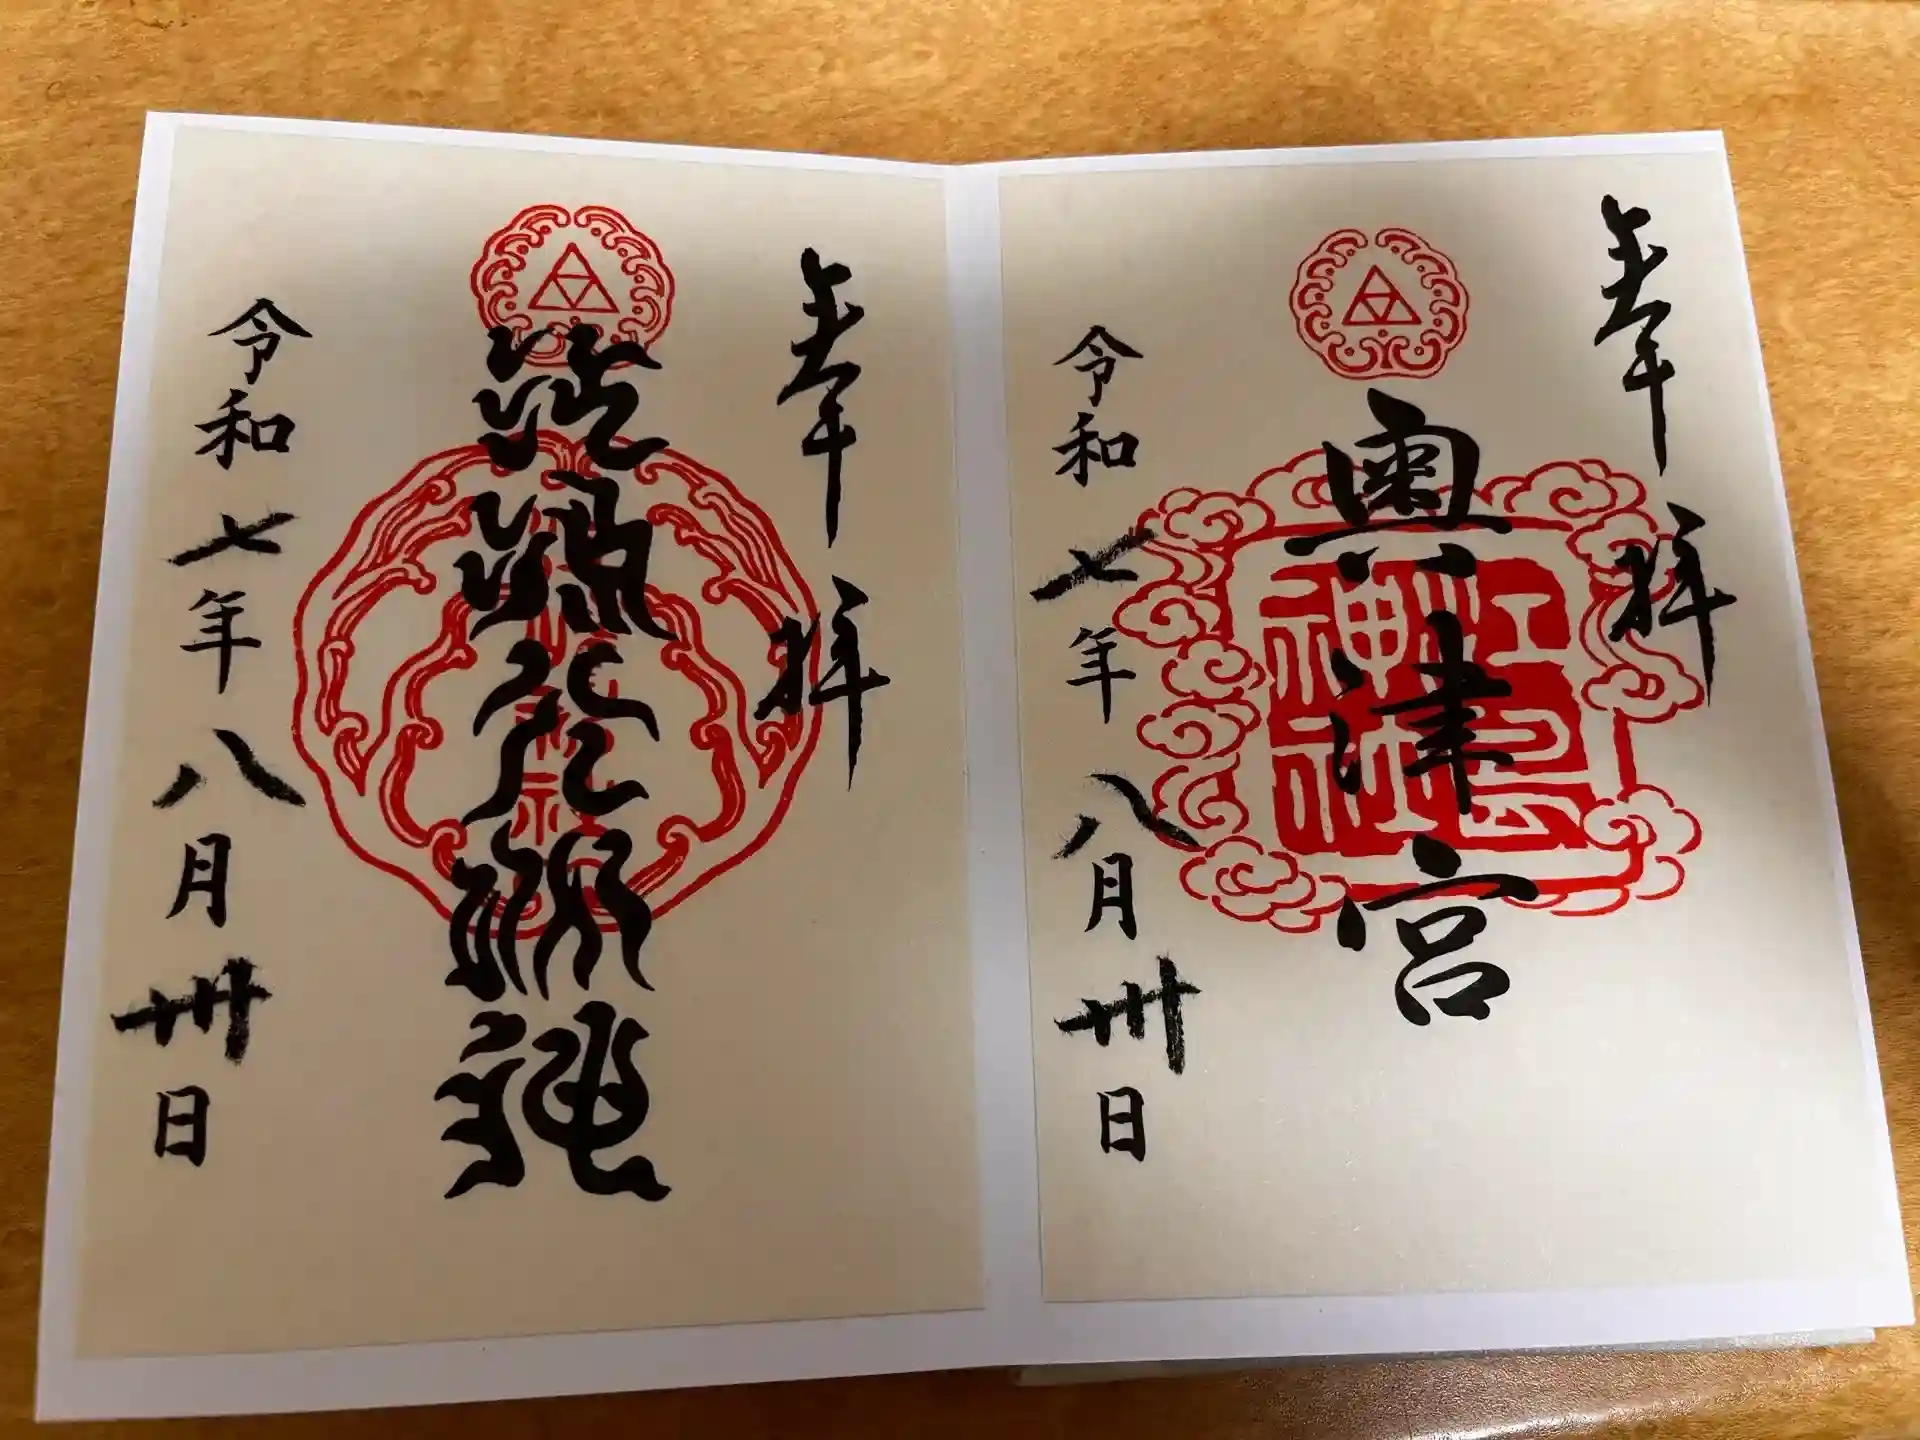 奉拝
奥津宮
江島
神社
令和七年八月卅日
奉拝
令和七年八月卅日